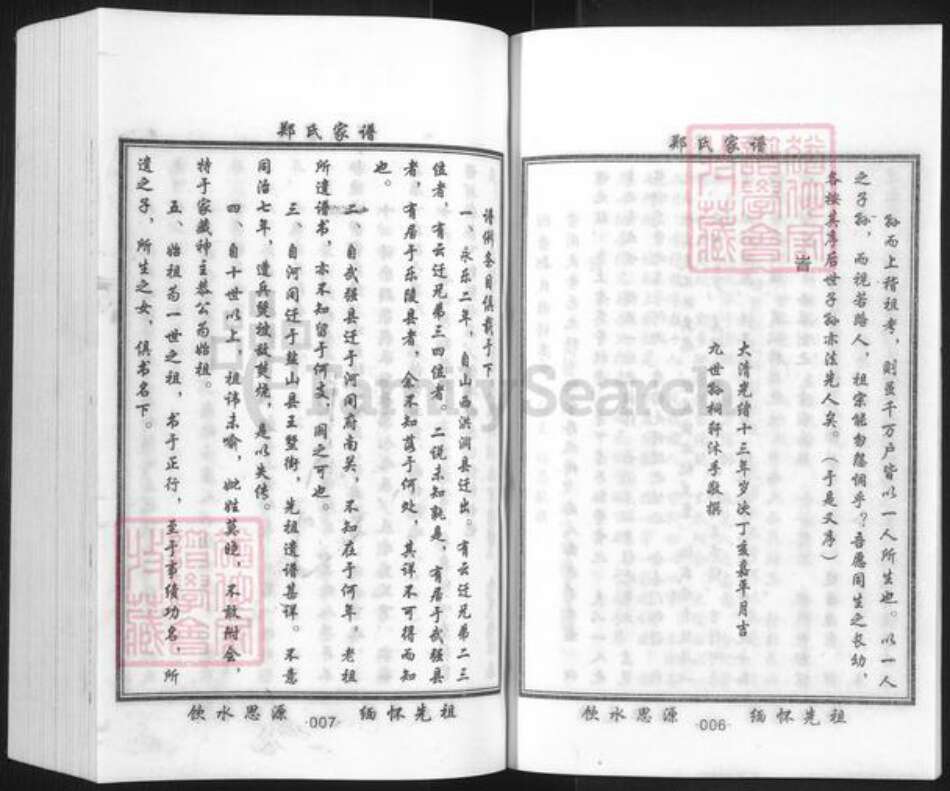 郑氏家谱
孙而上稽祖考，则虽千万户皆以一人所生也。以一人
之子孙，而视若路人，祖宗能勿怨恫乎？吾愿同生之长幼，
各按其序后世子孙亦法先人矣。（于是又序）
旹
大清光绪十三年岁次丁亥嘉平月吉
九世孙祠轩沐手敬撰
饮水思源
·006·
缅怀先祖
郑氏家谱
谱例条目俱载于下
一、永乐二年，自山西洪洞县迁出。有云迁兄弟二三
位者，有云迁兄弟三四位者。二说未知孰是，有居于武强县
者，有居于乐陵县者，余不知落于何处，其详不可得而知
也。
二、自武强县迁于河间府南关，不知在于何年，老祖
所遗谱书，亦不知留于何支，阙之可也。
三、自河间迁于盐山县王暨街，先祖遗谱甚详。不意
同治七年，遭兵燹被敌焚烧，是以失传。
四、自十世以上，祖讳未喻，妣姓莫晓，不敢附会，
特于家藏神主恭公为始祖。
五、始祖为一世之祖，书于正行，至于事绩功名，所
遗之子，所生之女，俱书名下。
饮水思源
·007·
缅怀先祖
FamilySearch